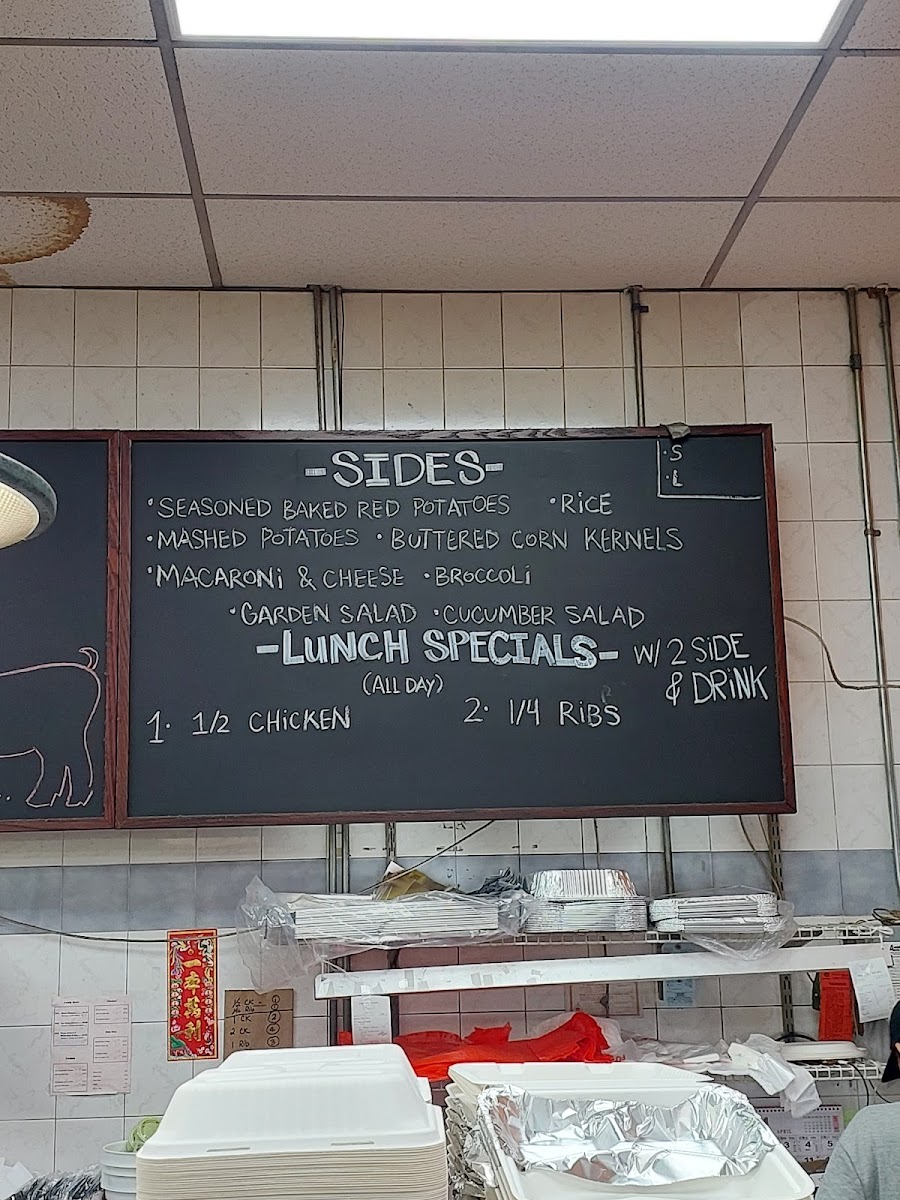 -SIDES-
·S
·L
·SEASONED BAKED RED POTATOES ·RiCE
·MASHED POTATOES ·BUTTERED CORN KERNELS
·MACARONi & CHEESE ·BROCCOLi
·GARDEN SALAD ·CUCUMBER SALAD
-LUNCH SPECIALS- W/ 2 SiDE & DRiNK
(ALL DAY)
1· 1/2 CHiCKEN 2· 1/4 RiBS
一本萬利
1/2 CK
1 CK
2 CK
1 Rib
APRIL
3 4 5
11